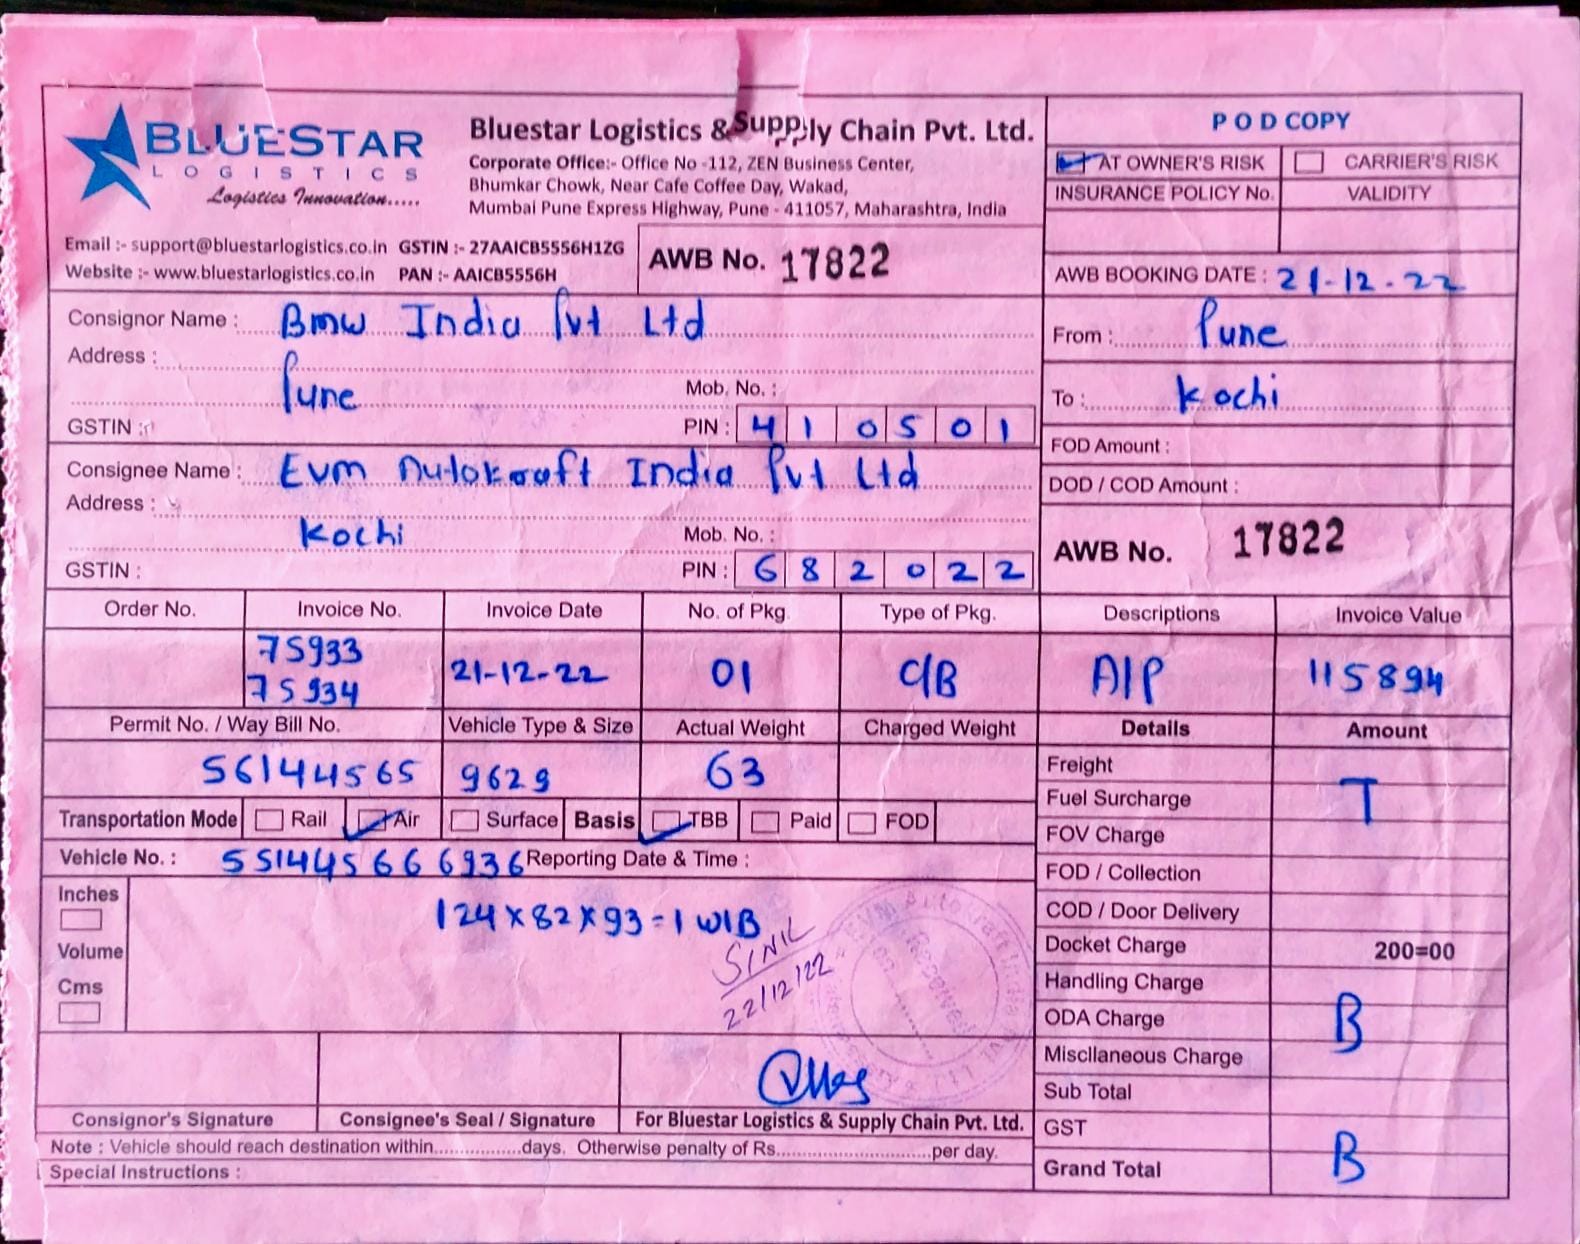 BLUESTAR
LOGISTICS
Logistics Innovation.....
Bluestar Logistics & Supply Chain Pvt. Ltd.
Corporate Office:- Office No -112, ZEN Business Center,
Bhumkar Chowk, Near Cafe Coffee Day, Wakad,
Mumbai Pune Express Highway, Pune - 411057, Maharashtra, India
Email :- support@bluestarlogistics.co.in GSTIN :- 27AAICB5556H1ZG
Website :- www.bluestarlogistics.co.in PAN :- AAICB5556H
AWB No. 17822
POD COPY
AT OWNER'S RISK CARRIER'S RISK
INSURANCE POLICY No. VALIDITY
AWB BOOKING DATE : 21-12-22
Consignor Name : Bmw India Pvt Ltd
Address :
Pune Mob. No. :
GSTIN : PIN : 410501
From : Pune
To : Kochi
Consignee Name : Evm Autokraft India Pvt Ltd
Address :
Kochi Mob. No. :
GSTIN : PIN : 682022
FOD Amount :
DOD / COD Amount :
AWB No. 17822
Order No. Invoice No. Invoice Date No. of Pkg. Type of Pkg. Descriptions Invoice Value
75933
75934 21-12-22 01 C/B A/P 115894
Permit No. / Way Bill No. Vehicle Type & Size Actual Weight Charged Weight Details Amount
56144565 9629 63
Transportation Mode Rail Air Surface Basis TBB Paid FOD
Vehicle No. : 551445666936 Reporting Date & Time :
Inches
Volume
Cms
124x82x93=1 W/B
SINIL
22/12/22
EVM Autokraft India Pvt Ltd
Received
Freight
Fuel Surcharge T
FOV Charge
FOD / Collection
COD / Door Delivery
Docket Charge 200=00
Handling Charge
ODA Charge B
Miscllaneous Charge
Sub Total
GST
Grand Total B
Consignor's Signature Consignee's Seal / Signature For Bluestar Logistics & Supply Chain Pvt. Ltd.
Note : Vehicle should reach destination within.................days. Otherwise penalty of Rs..............................per day.
Special Instructions :